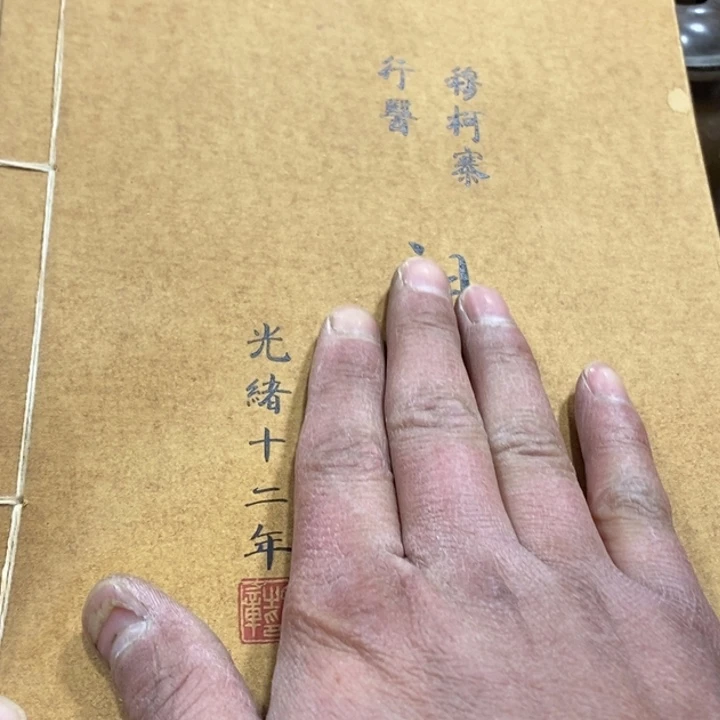 穆柯寨
行醫
光緒十二年